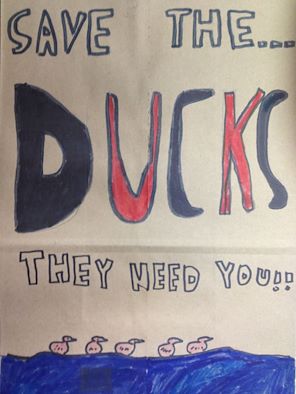 SAVE THE...
DUCKS
THEY NEED YOU!!